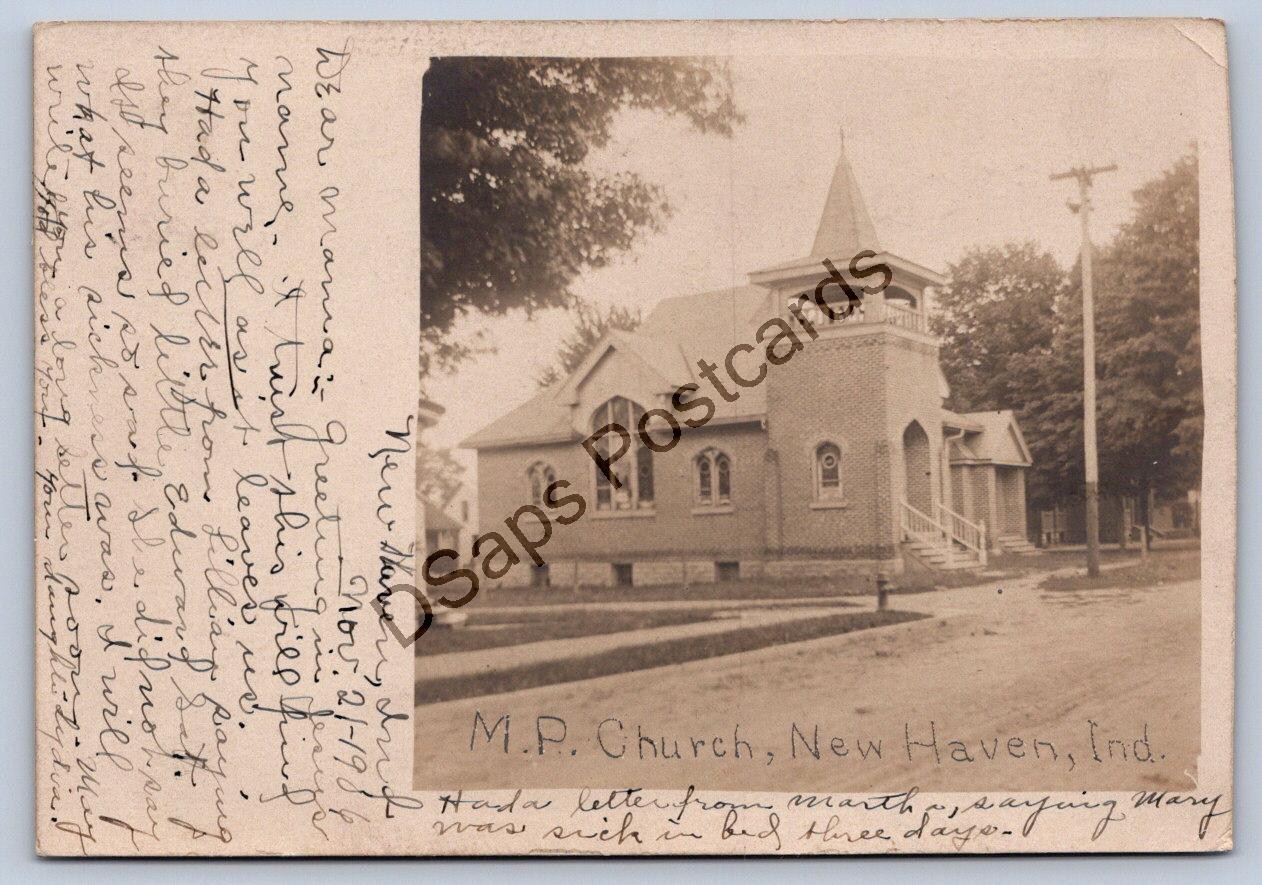 New Haven, Ind
Nov. 21-1906
Dear Mamma:- Greeting in Jesus
name,- I trust this will find
you well as it leaves us.
Had a letter from Lillian saying
they buried little Edward Sat.
It seems so sad. She did not say
what his sickness was. I will
write you a long letter soon- May
God bless you- your daughter Lydia.
M.P. Church, New Haven, Ind.
Had a letter from Martha, saying Mary
was sick in bed three days-
DSaps Postcards